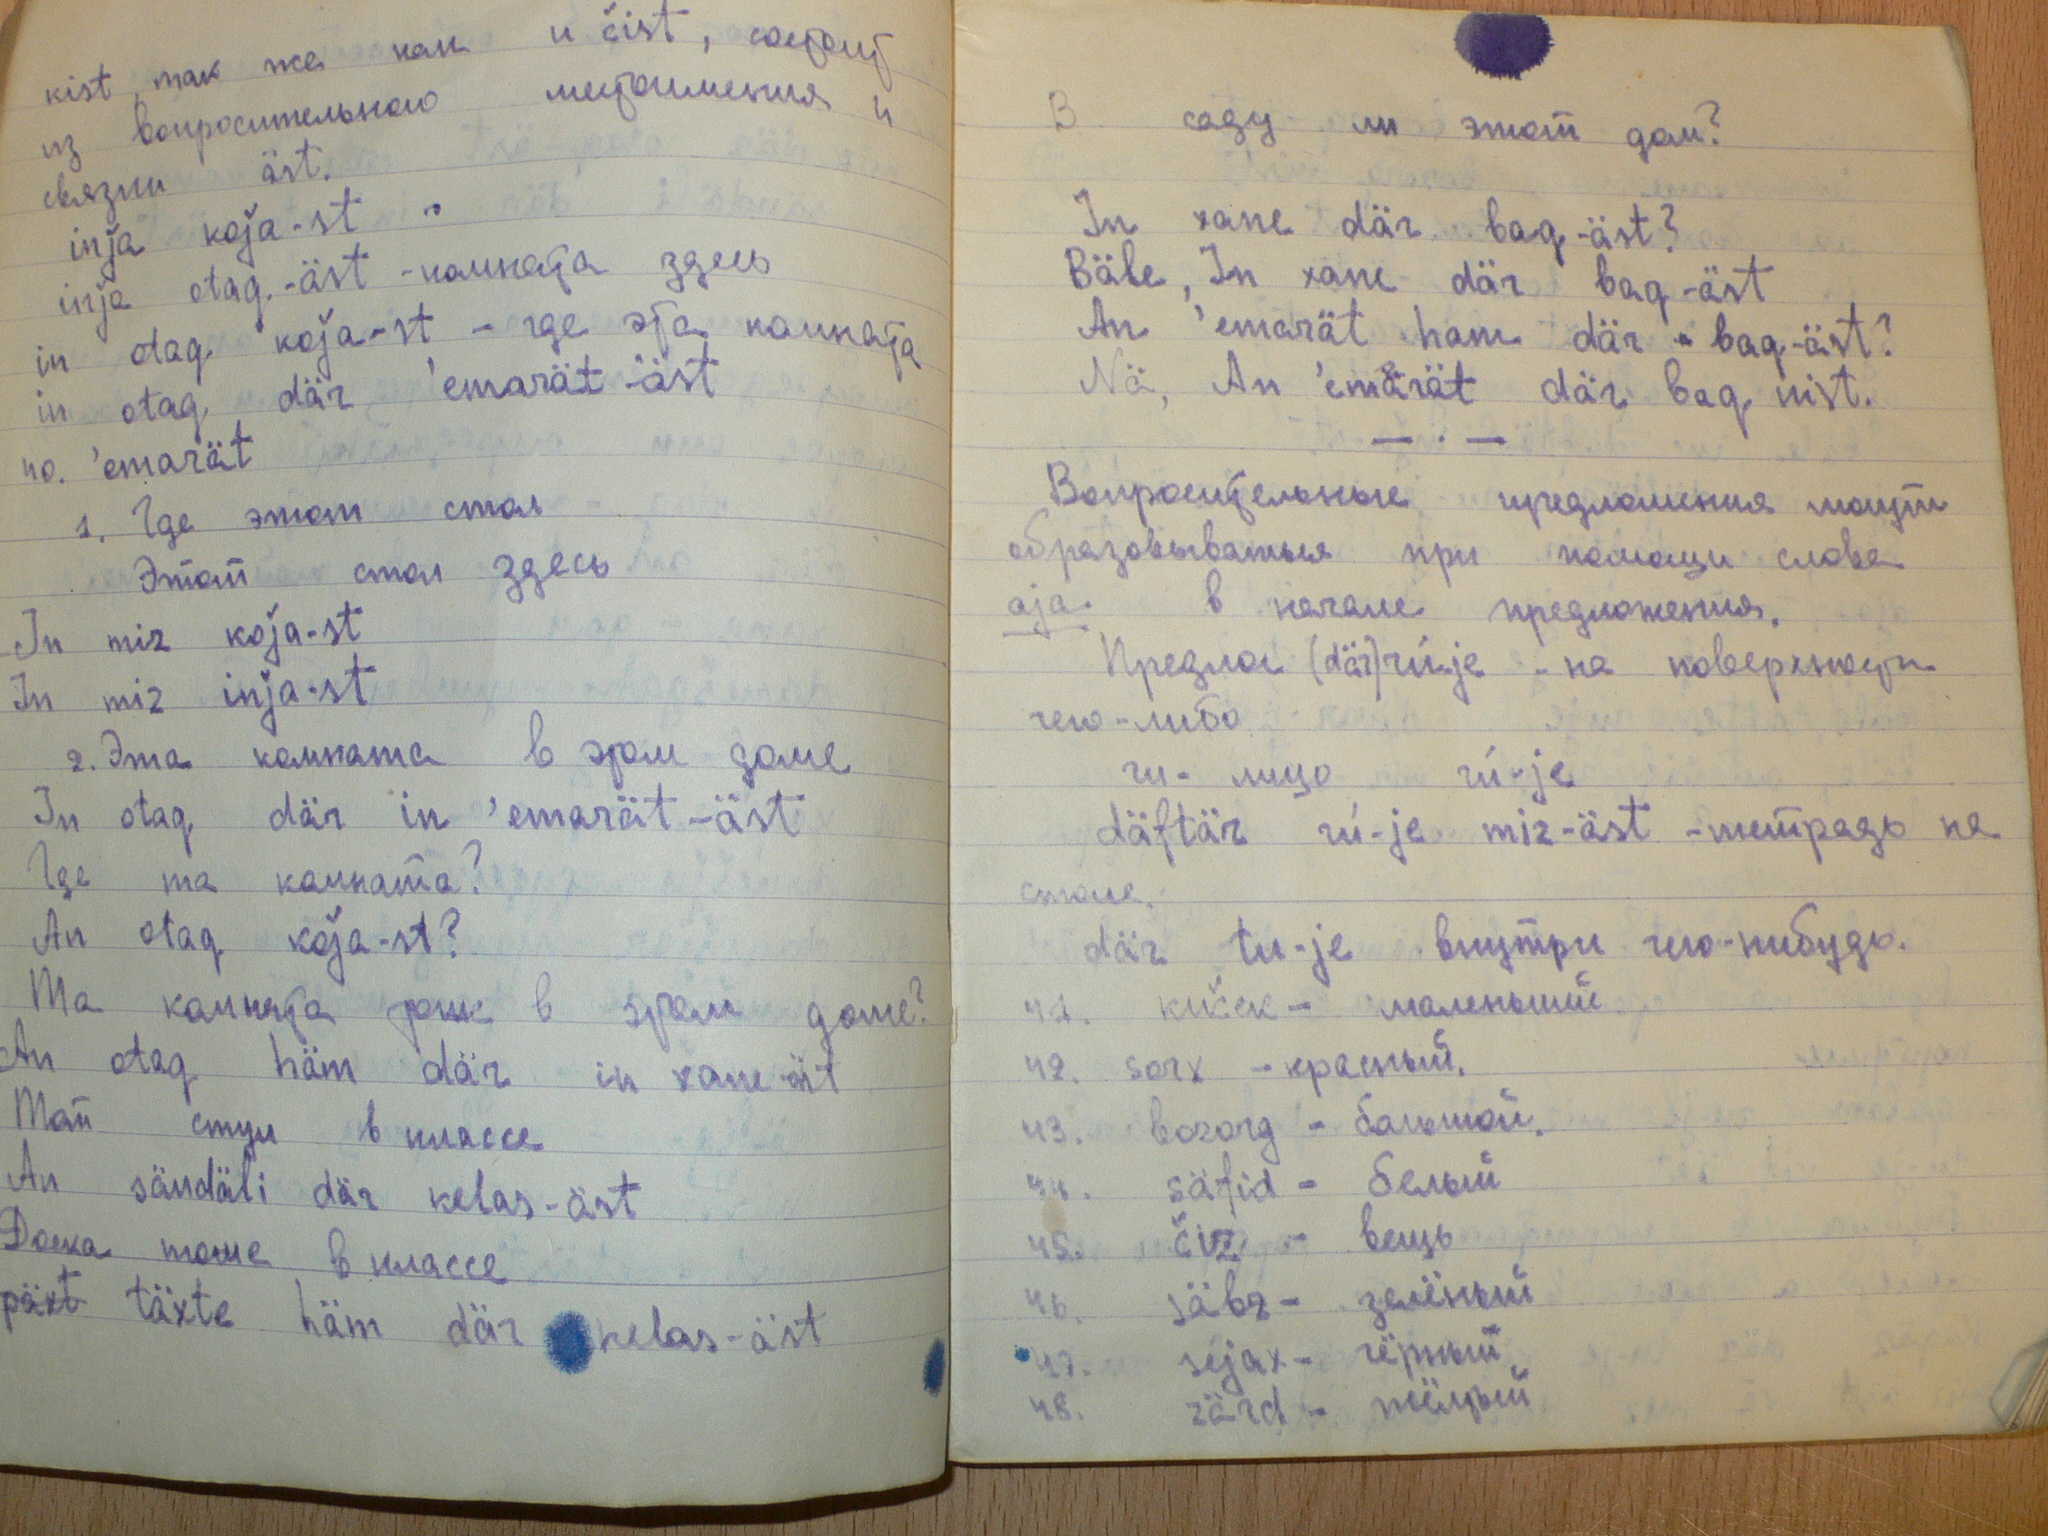 kist, так же как и čist, состоит
из вопросительного местоимения и
связки äst.
inǰa koǰa-st
inǰa otaq-äst - комната здесь
in otaq koǰa-st - где эта комната
in otaq där 'emarät-äst
40. 'emarät
1. Где этот стол
Этот стол здесь
In miz koǰa-st
In miz inǰa-st
2. Эта комната в этом доме
In otaq där in 'emarät-äst
Где та комната?
An otaq koǰa-st?
Та комната тоже в этом доме?
An otaq häm där in xane-äst
Тот стул в классе
An sändäli där kelas-äst
Доска тоже в классе
päxt täxte häm där kelas-äst
В саду ли этот дом?
In xane där baq-äst?
Bäle, In xane där baq-äst
An 'emarät ham där baq-äst?
Nä, An 'emarät där baq nist.
— . —
Вопросительные предложения могут
образовываться при помощи слова
aja в начале предложения.
Предлог (där) rú-je - на поверхности
чего-либо
ru - лицо rú-je
däftär rú-je miz-äst - тетрадь на
столе.
där tu-je внутри чего-нибудь.
41. kuček - маленький
42. sorx - красный.
43. bozorg - большой.
44. säfid - белый
45. čiz - вещь
46. säbz - зелёный
47. sejax - чёрный
48. zärd - жёлтый